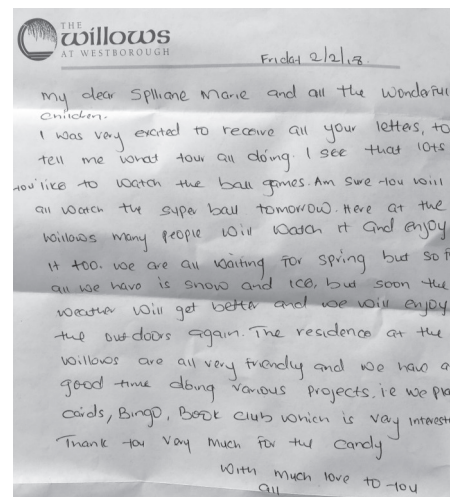 THE
willows
AT WESTBOROUGH
Friday 2/2/18.
My dear Splliane Marie and all the wonderful
children.
I was very excited to receive all your letters, to
tell me what your all doing. I see that lots
you like to watch the ball games. Am sure you will
all watch the super ball tomorrow. Here at the
Willows many people will watch it and enjoy
it too. We are all waiting for spring but so f
all we have is snow and ice, but soon the
weather will get better and we will enjoy
the out doors again. The residence at the
Willows are all very friendly and we have a
good time doing various projects, ie we pla
cards, Bingo, Book club which is vay interest
Thank you very much for the candy
with much love to you
all